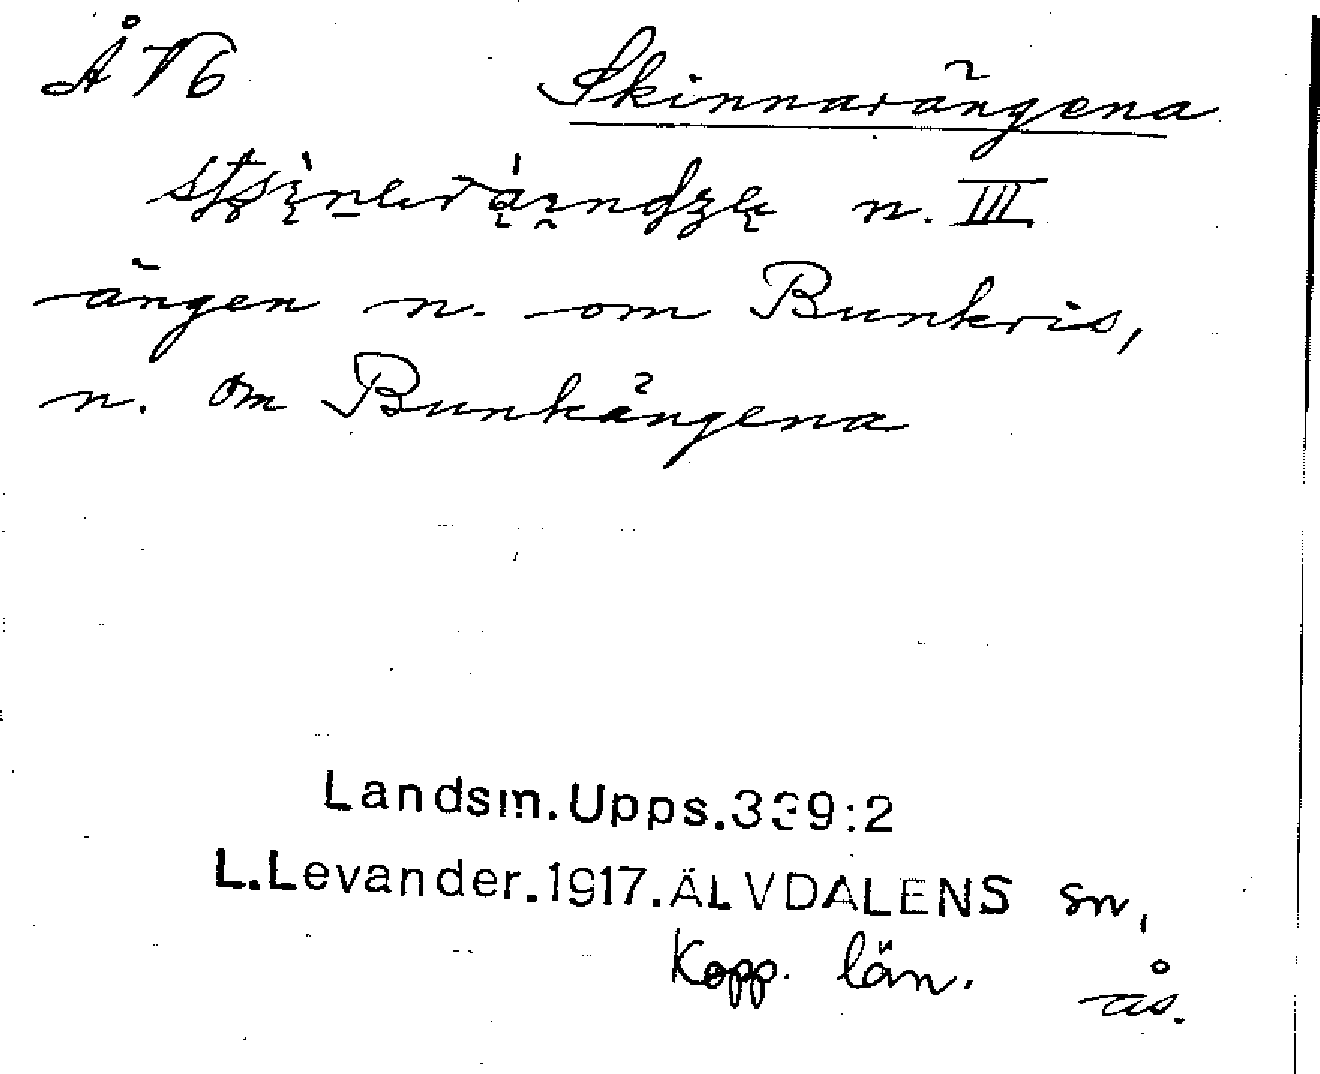 Å V6 Skinnarängena
n. III
ängen n. om Bunkris,
n. om Bunkängena
Landsm.Upps.339:2
L.Levander.1917.ÄLVDALENS sn,
Kopp. län.
ås.